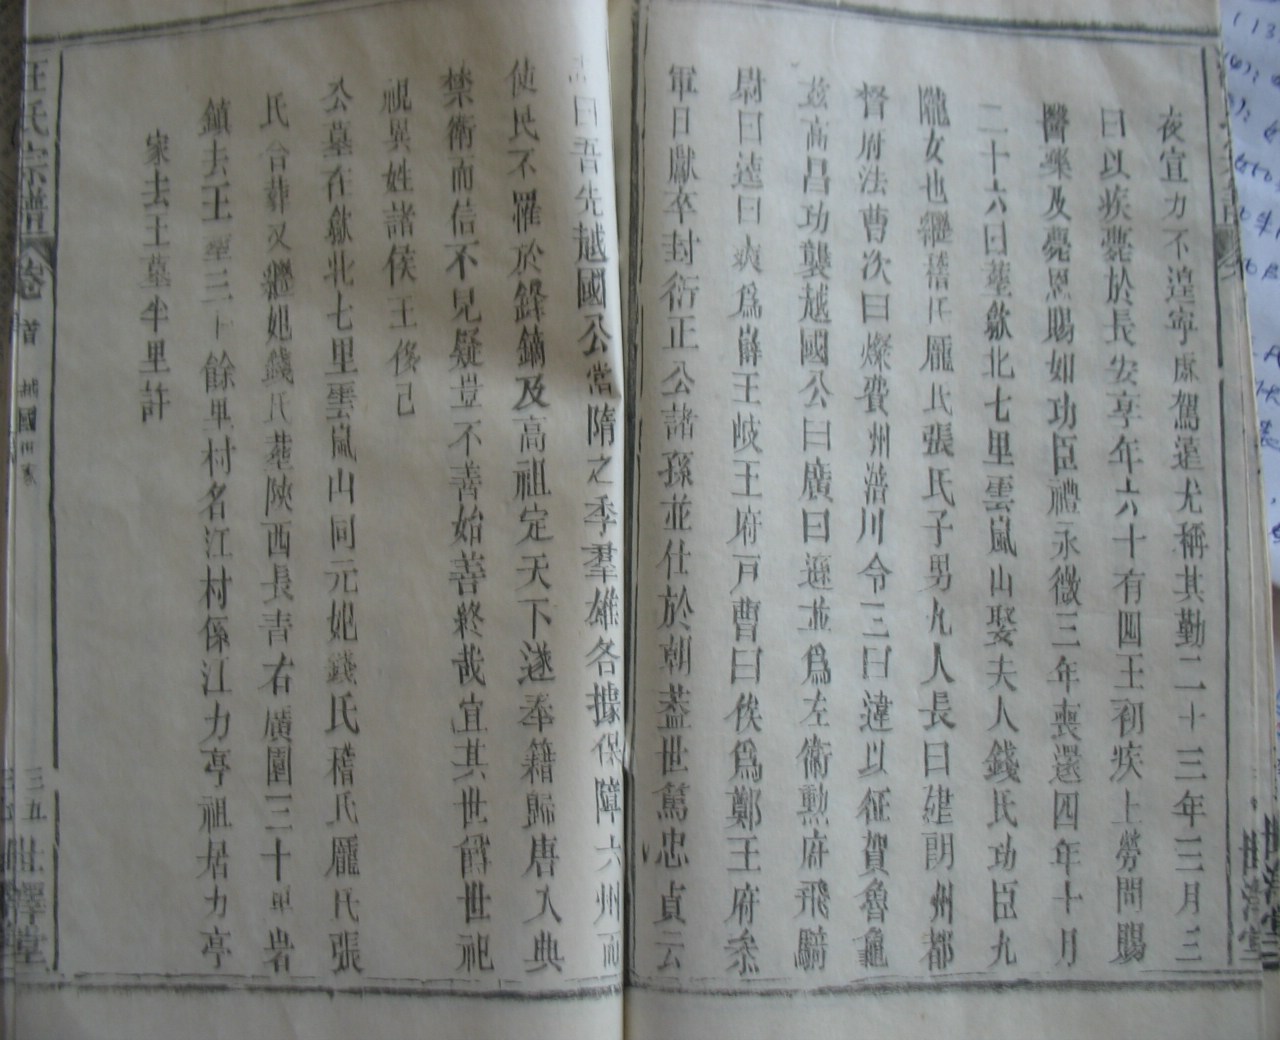 夜宜力不遑寧處駕還尤稱其勤二十三年三月三
日以疾薨於長安享年六十有四王初疾上勞問賜
醫藥及薨恩賜如功臣禮永徽三年喪還四年十月
二十六日葬歙北七里雲嵐山娶夫人錢氏功臣九
隴女也繼稽氏龐氏張氏子男九人長曰建朗州都
督府法曹次曰燦費州涪川令三曰達以征賀魯龜
茲高昌功襲越國公曰廣曰遜並爲左衛勲府飛騎
尉曰逵曰爽爲岐王府戶曹曰俊爲鄭王府參
軍曰獻卒封衍正公諸孫並仕於朝蓋世篤忠貞云
曰吾先越國公當隋之季羣雄各據保障六州而
使民不罹於鋒鏑及高祖定天下遂奉籍歸唐入典
禁衛而信不見疑豈不善始善終哉宜其世爵世祀
視異姓諸侯王侈已
公墓在歙北七里雲嵐山同元妃錢氏稽氏龐氏張
氏合葬又繼妃錢氏葬陝西長青右廣圍三十單岩
鎮去王墓三十餘里村名江村係江力亭祖居力亭
家去王墓半里許
汪氏宗譜
卷首
越國世家
三五
世澤堂